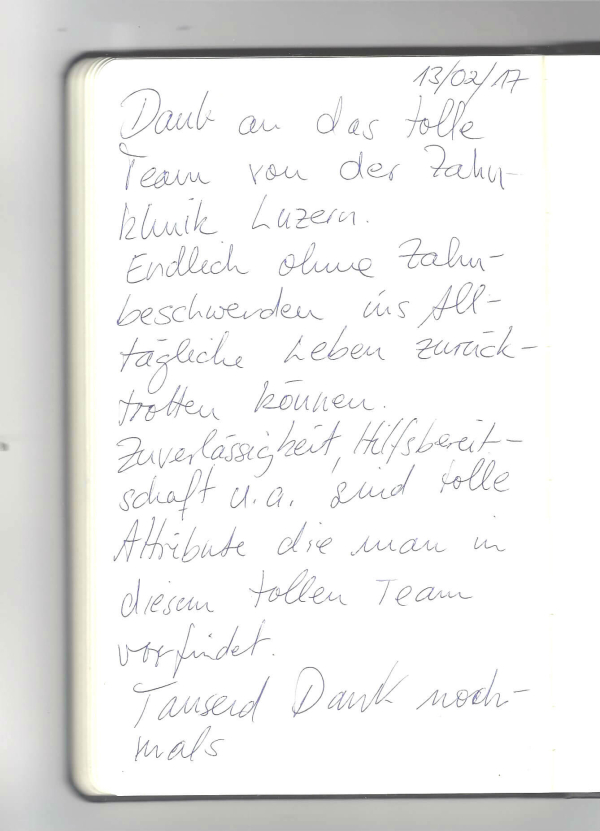 13/02/17
Dank an das tolle
Team von der Zahn-
klinik Luzern.
Endlich ohne Zahn-
beschwerden ins All-
tägliche Leben zurück-
trotten können.
Zuverlässigkeit, Hilfsbereit-
schaft u.a. sind tolle
Attribute die man in
diesem tollen Team
vorfindet.
Tausend Dank noch-
mals